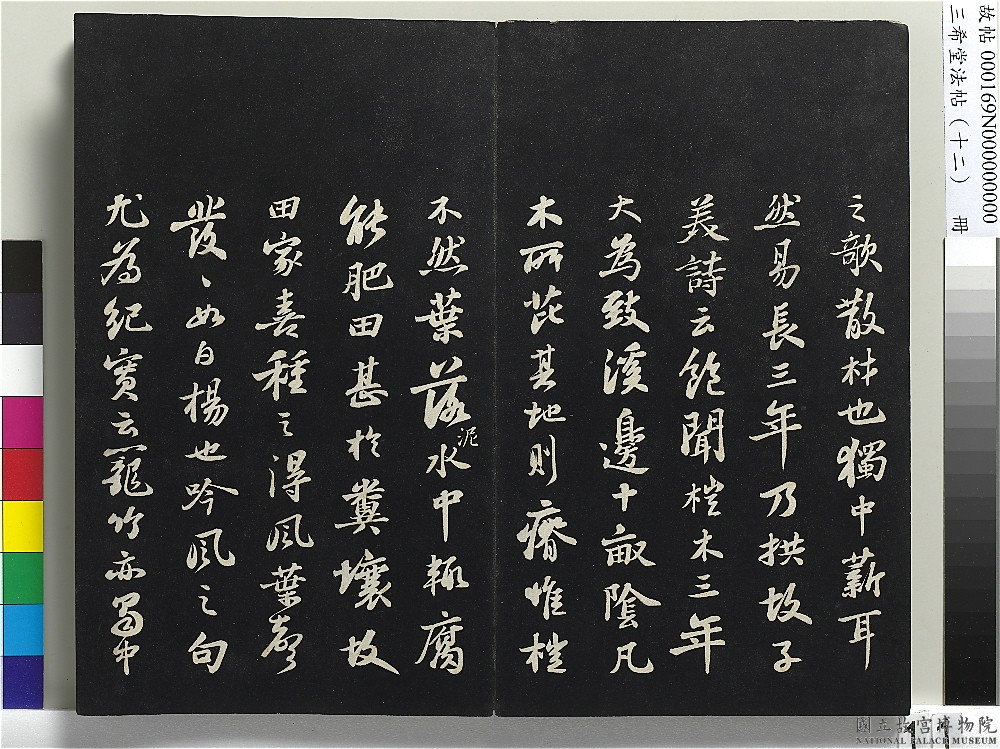 之欹散材也獨中薪耳
然易長三年乃拱故子
美詩云飽聞榿木三年
大為致溪邊十畝陰凡
木所芘其地則瘠惟榿
不然葉落泥水中輒腐
能肥田甚於糞壤故
田家喜種之得風葉聲
發〻如白楊也吟風之句
尤為紀實云籠竹亦蜀中
故帖 000169N000000000
三希堂法帖(十二) 冊
國立故宮博物院
NATIONAL PALACE MUSEUM